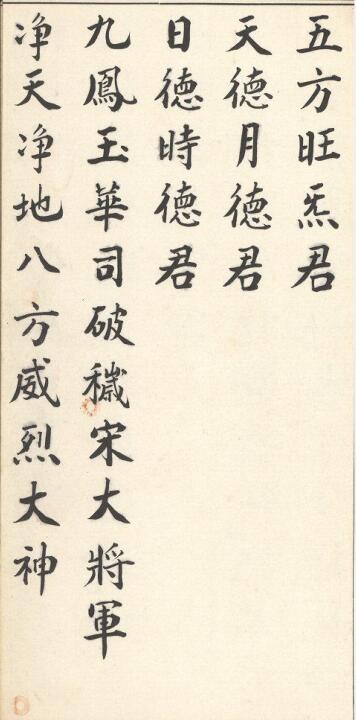 五方旺炁君
天德月德君
日德時德君
九鳳玉華司破穢宋大將軍
净天净地八方威烈大神